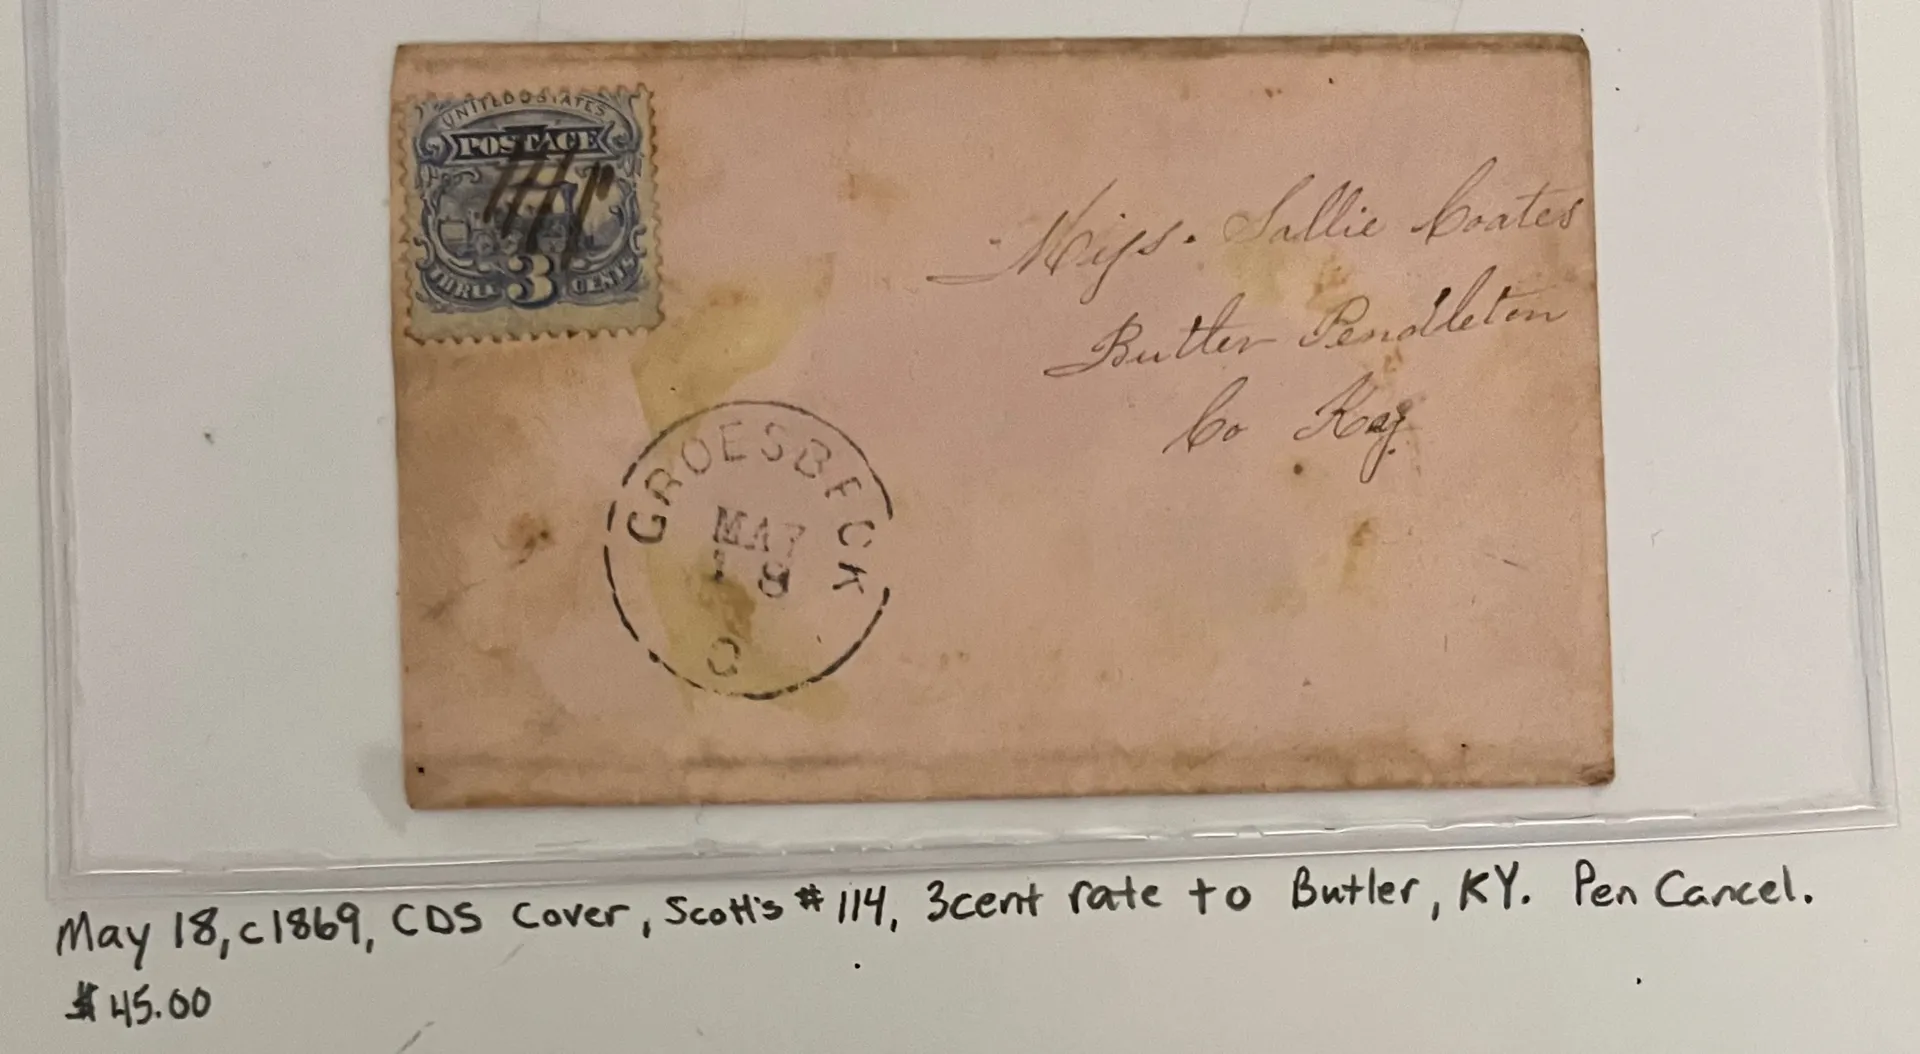 UNITED STATES
POSTAGE
THREE 3 CENTS
Miss. Sallie Coates
Butler Pendleton
Co Kay
GROESBECK
MAY
18
O
May 18, c1869, CDS Cover, Scott's # 114, 3cent rate to Butler, KY. Pen Cancel.
$45.00